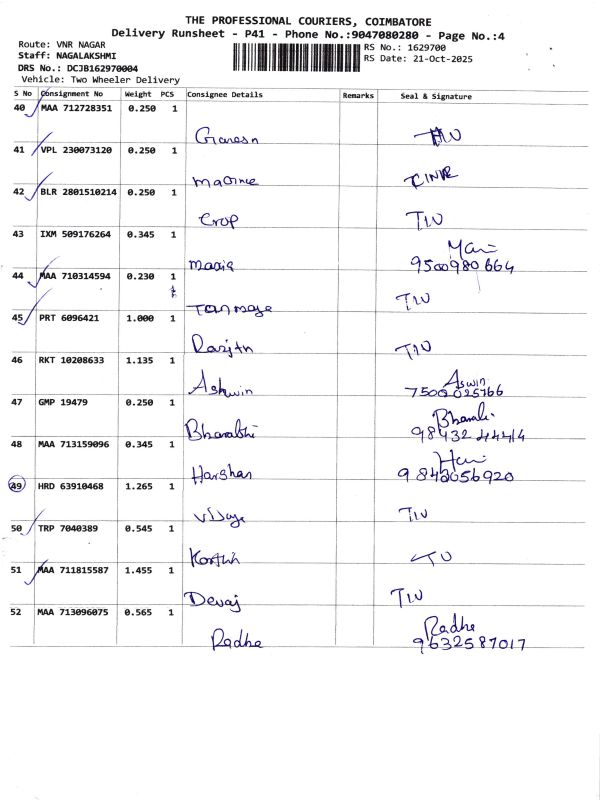 THE PROFESSIONAL COURIERS, COIMBATORE
Delivery Runsheet - P41 - Phone No.:9047080280 - Page No.:4
Route: VNR NAGAR
RS No.: 1629700
Staff: NAGALAKSHMI
RS Date: 21-Oct-2025
DRS No.: DCJB162970004
Vehicle: Two Wheeler Delivery
S No Consignment No Weight PCS Consignee Details Remarks Seal & Signature
40 MAA 712728351 0.250 1
Ganesh
41 VPL 230073120 0.250 1
42 BLR 2801510214 0.250 1
Crop TIU
43 IXM 509176264 0.345 1
Mani
9500980664
44 MAA 710314594 0.230 1
Tanmaye TIU
45 PRT 6096421 1.000 1
Ranjth TIU
46 RKT 10208633 1.135 1
Aswin
Ashwin
47 GMP 19479 0.250 1
Bharathi
48 MAA 713159096 0.345 1
Hari
Harshan 9842056920
49 HRD 63910468 1.265 1
Vijaye TIU
50 TRP 7040389 0.545 1
Karthi
51 MAA 711815587 1.455 1
Devaj TIU
52 MAA 713096075 0.565 1
Radhe
Radhe 9632587017